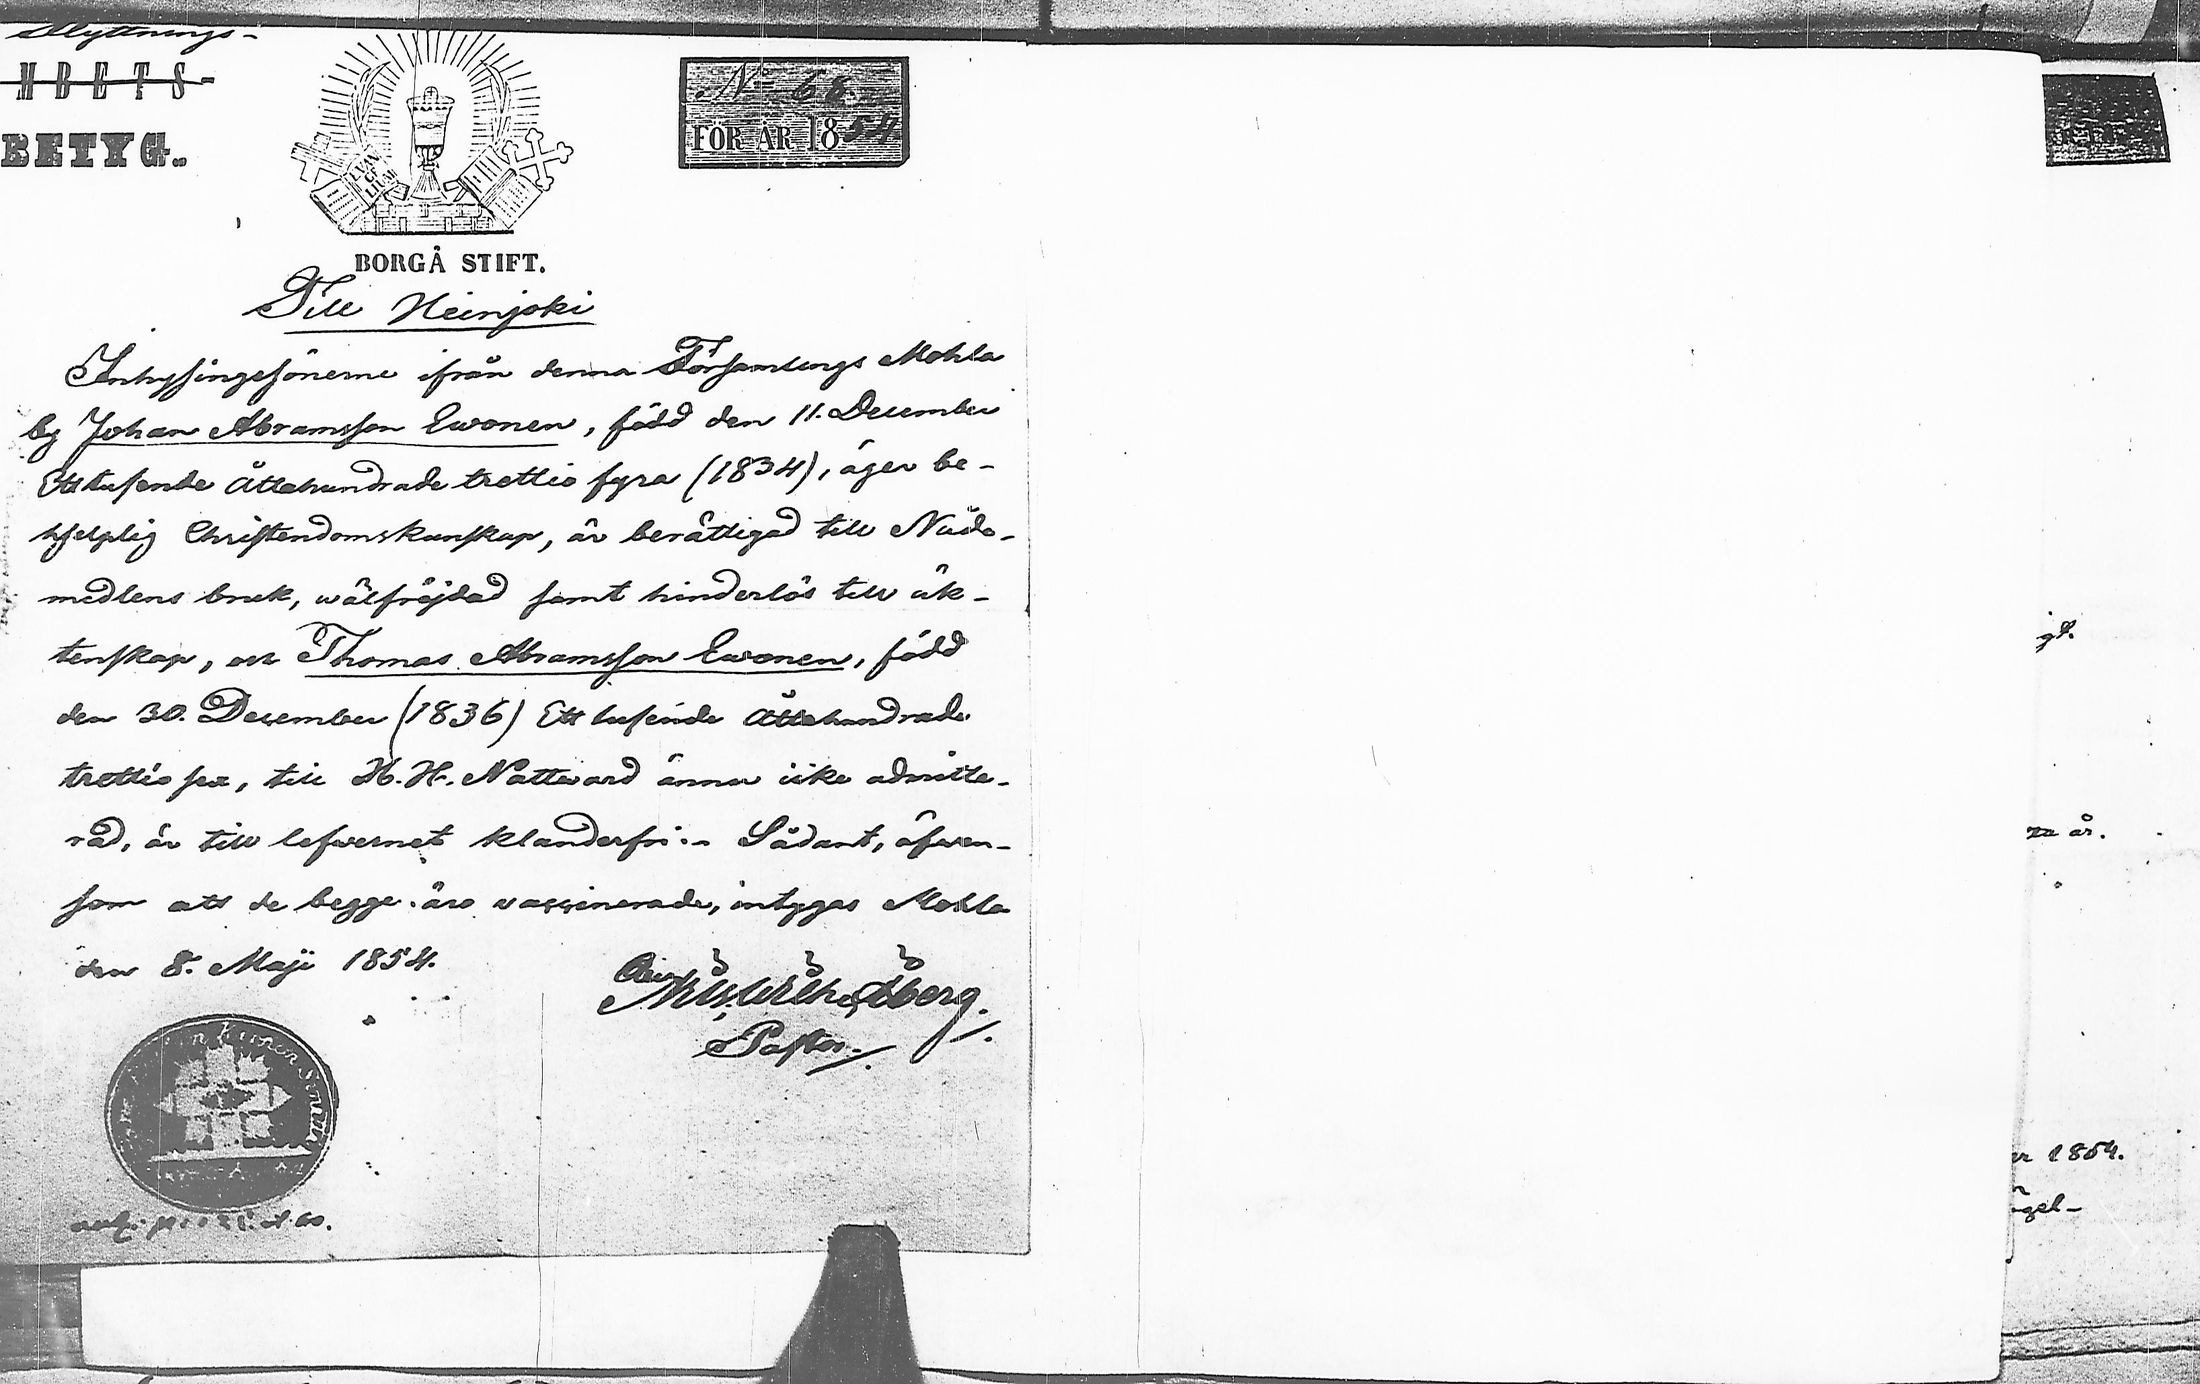 Flyttnings-
MBETS-
BETYG.
No 66.
FÖR ÅR 1854.
EVAN
GE
LIUM
BORGÅ STIFT.
Till Heinjoki
Inhysingesönerne ifrån denna Församlings Mohla
by Johan Abramsson Ewonen, född den 11. December
Ett tusende Åttahundrade trettio fyra (1834), äger be-
hjelplig Christendomskunskap, är berättigad till Nåde-
medlens bruk, wälfräjdad samt hinderlös till äk-
tenskap, och Thomas Abramsson Ewonen, född
den 30. December (1836) Ett tusende Åttahundrade
trettio sex, till H. H. Nattward ännu icke admitte-
rad, är till lefwernet klanderfri.- Sådant, äfwen-
som att de begge äro vaccinerade, intygas Mohla
den 8. Maji 1854.
Öberg.
Pastor.
gt.
åR
år.
r 1854.
gel-